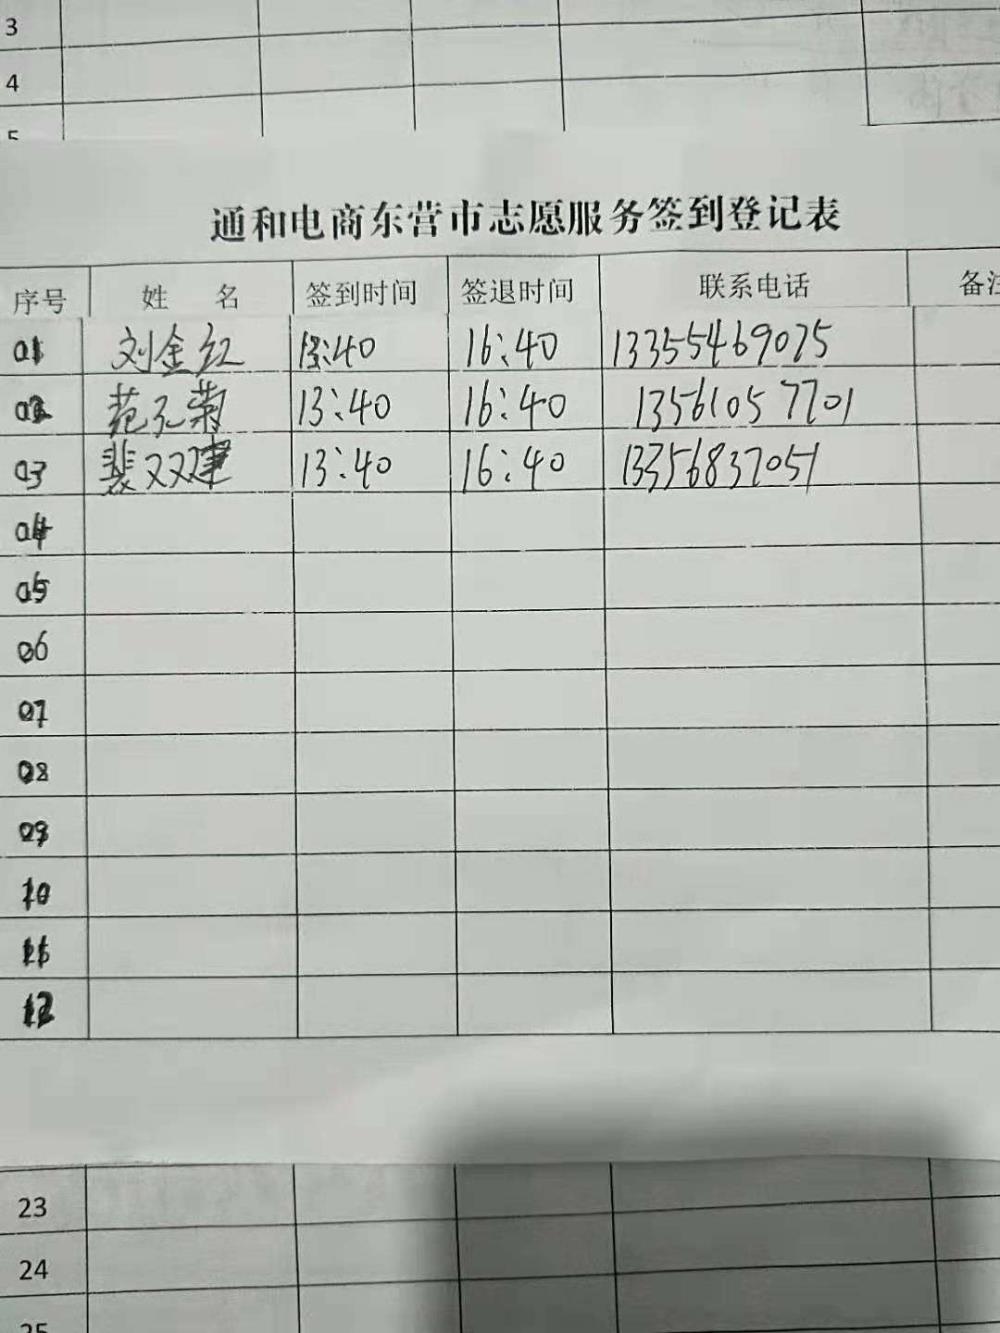 3
4
5
通和电商东营市志愿服务签到登记表
序号 姓 名 签到时间 签退时间 联系电话 备注
01 刘金红 13:40 16:40 13355469075
02 范孔菊 13:40 16:40 13561057701
03 裴双建 13:40 16:40 13356837051
04
05
06
07
08
09
10
11
12
23
24
25